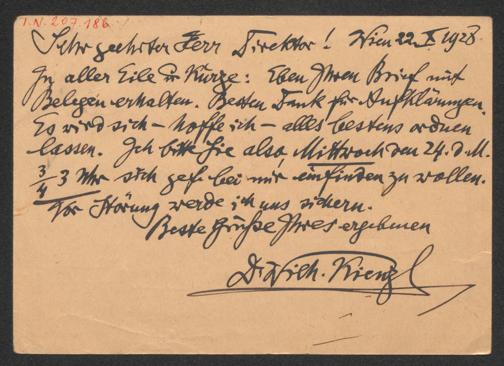 I.N. 207.186
Sehr geehrter Herr Direktor! Wien 22. X. 1928
In aller Eile u. Kürze: Eben Ihren Brief mit
Belegen erhalten. Besten Dank für Aufklärungen.
Es wird sich – hoffe ich – alles bestens ordnen
lassen. Ich bitte Sie also, Mittwoch den 24. d. M.
3/4 3 Uhr sich gef. bei mir einfinden zu wollen.
Vor Störung werde ich uns sichern.
Beste Grüße Ihres ergebenen
Dr. Wilh. Kienzl